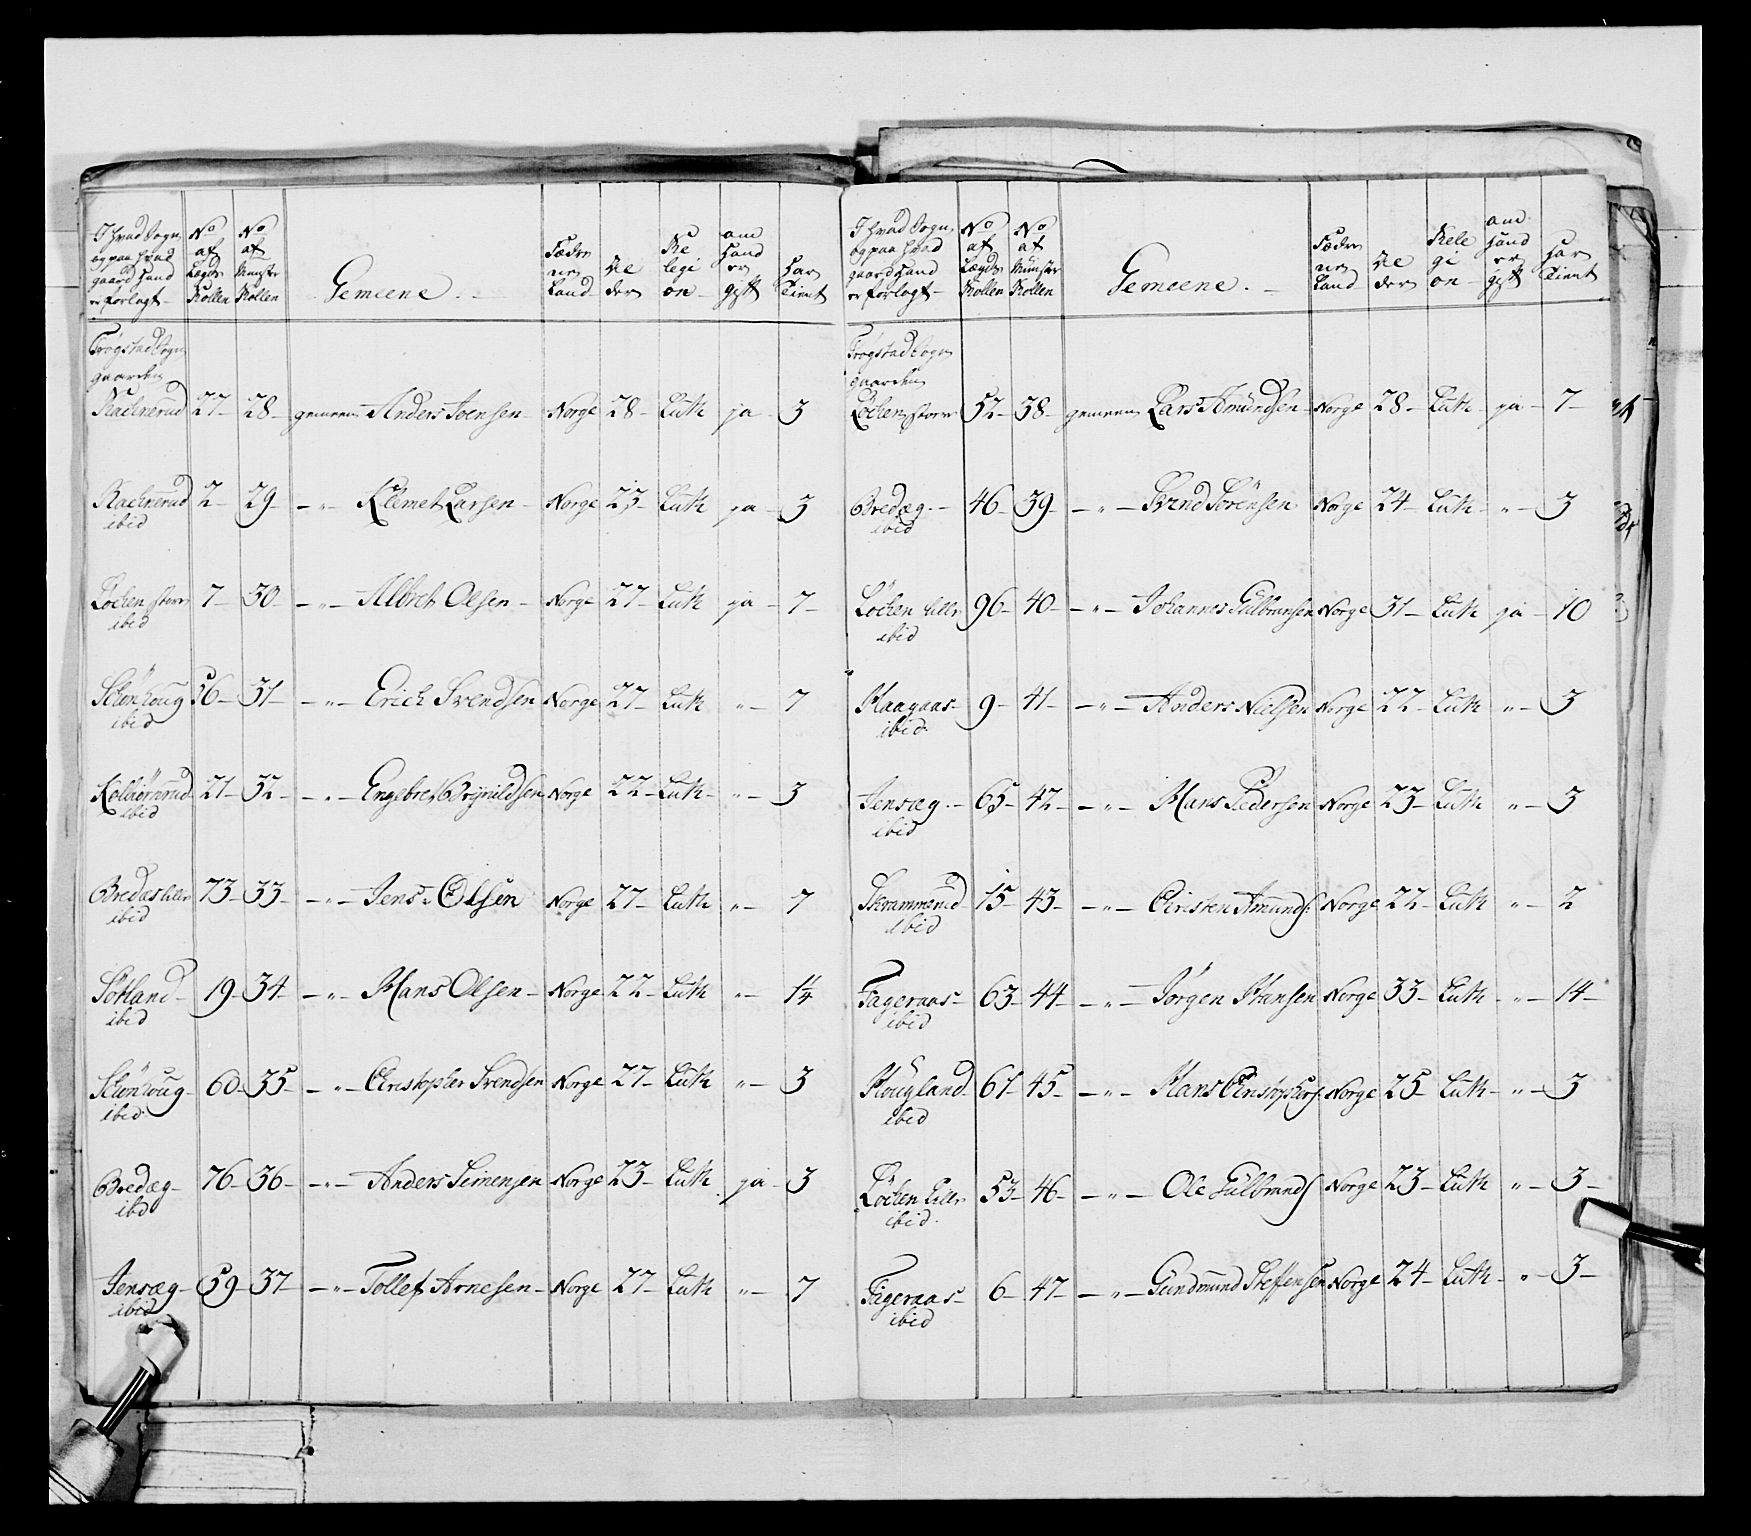 I hvad Sogn og paa hvad gaard hand er forlagt - No af Lægds Rollen No af Mynster Rollen Gemeene. - Fædre ne Land Al der Re legi on - om Hand er gift har Tient
Trøgstad Sogn
gaarden
Rachnerud 27 - 28 - gemeen Anders Joensen - Norge 28 - Luth ja - 3
Rachnerud 2 - 29 - - " - Klemet Larsen - Norge 23 - Luth ja - 3
ibid
Løchen store 7 - 30 - - " - Albret Olsen - Norge 27 - Luth ja - 7 -
ibid
Schönhoug 56 - 31 - - " - Erich Svendsen Norge 27 - Luth " - 7
ibid
Kolbiörnrud 21 - 32 - - " - Engebret Brijnildsen Norge 22 - Luth " - 3
ibid
Bredas lille 73 - 33 - - " - Jens Olsen Norge 27 - Luth " - 7
ibid
Sötland - 19 - 34 - - " - Hans Olsen - Norge 22 - Luth " - 14
ibid
Schönhoug - 60 - 35 - - " - Christopher Svendsen Norge 27 - Luth " - 3
ibid
Bredæg - 76 - 36 - - " - Anders Simensen Norge 23 - Luth ja - 3
ibid
Jensæg - 59 - 37 - - " - Tollef Arnesen - Norge 27 - Luth " - 7
ibid
I hvad Sogn, og paa hvad gaard Hand er forlagt - No af Lægds Rollen No af Mynster Rollen Gemeene. - Fædre ne Land Al der Rele gi on - om Hand er gift har Tient
Trøgstad Sogn
gaarden
Löchen store 52 - 38 - gemeen Lars Amundsen - Norge 28 - Luth - ja - 7 -
Bredæg. - 46 - 39 - - " - Svend Sörensen Norge 24 - Luth - " - 3
ibid
Löchen lille 96 - 40 - - " - Johannes Gulbransen Norge 31 - Luth ja - 10
ibid
Haagaas - 9 - 41 - - " - Anders Nielsen Norge 22 - Luth " - 3
ibid.
Jensæg. - 65 - 42 - - " - Hans Pedersen Norge 23 - Luth " - 3
ibid
Skrammerud 15 - 43 - - " - Christen Amunds: Norge 22 - Luth " - 2
ibid
Fageraas - 63 - 44 - - " - Jörgen Hansen Norge 33 - Luth - " - 14 -
ibid
Hougland - 61 - 45 - - " - Hans Christophers: Norge 25 - Luth - " - 3
ibid
Löchen Lille 53 - 46 - - " - Ole Gulbrands Norge 23 - Luth " - 3 -
ibid.
Fageraas - 6 - 47 - - " - Gundmund Steffensen Norge 24 - Luth - " - 3 -
ibid